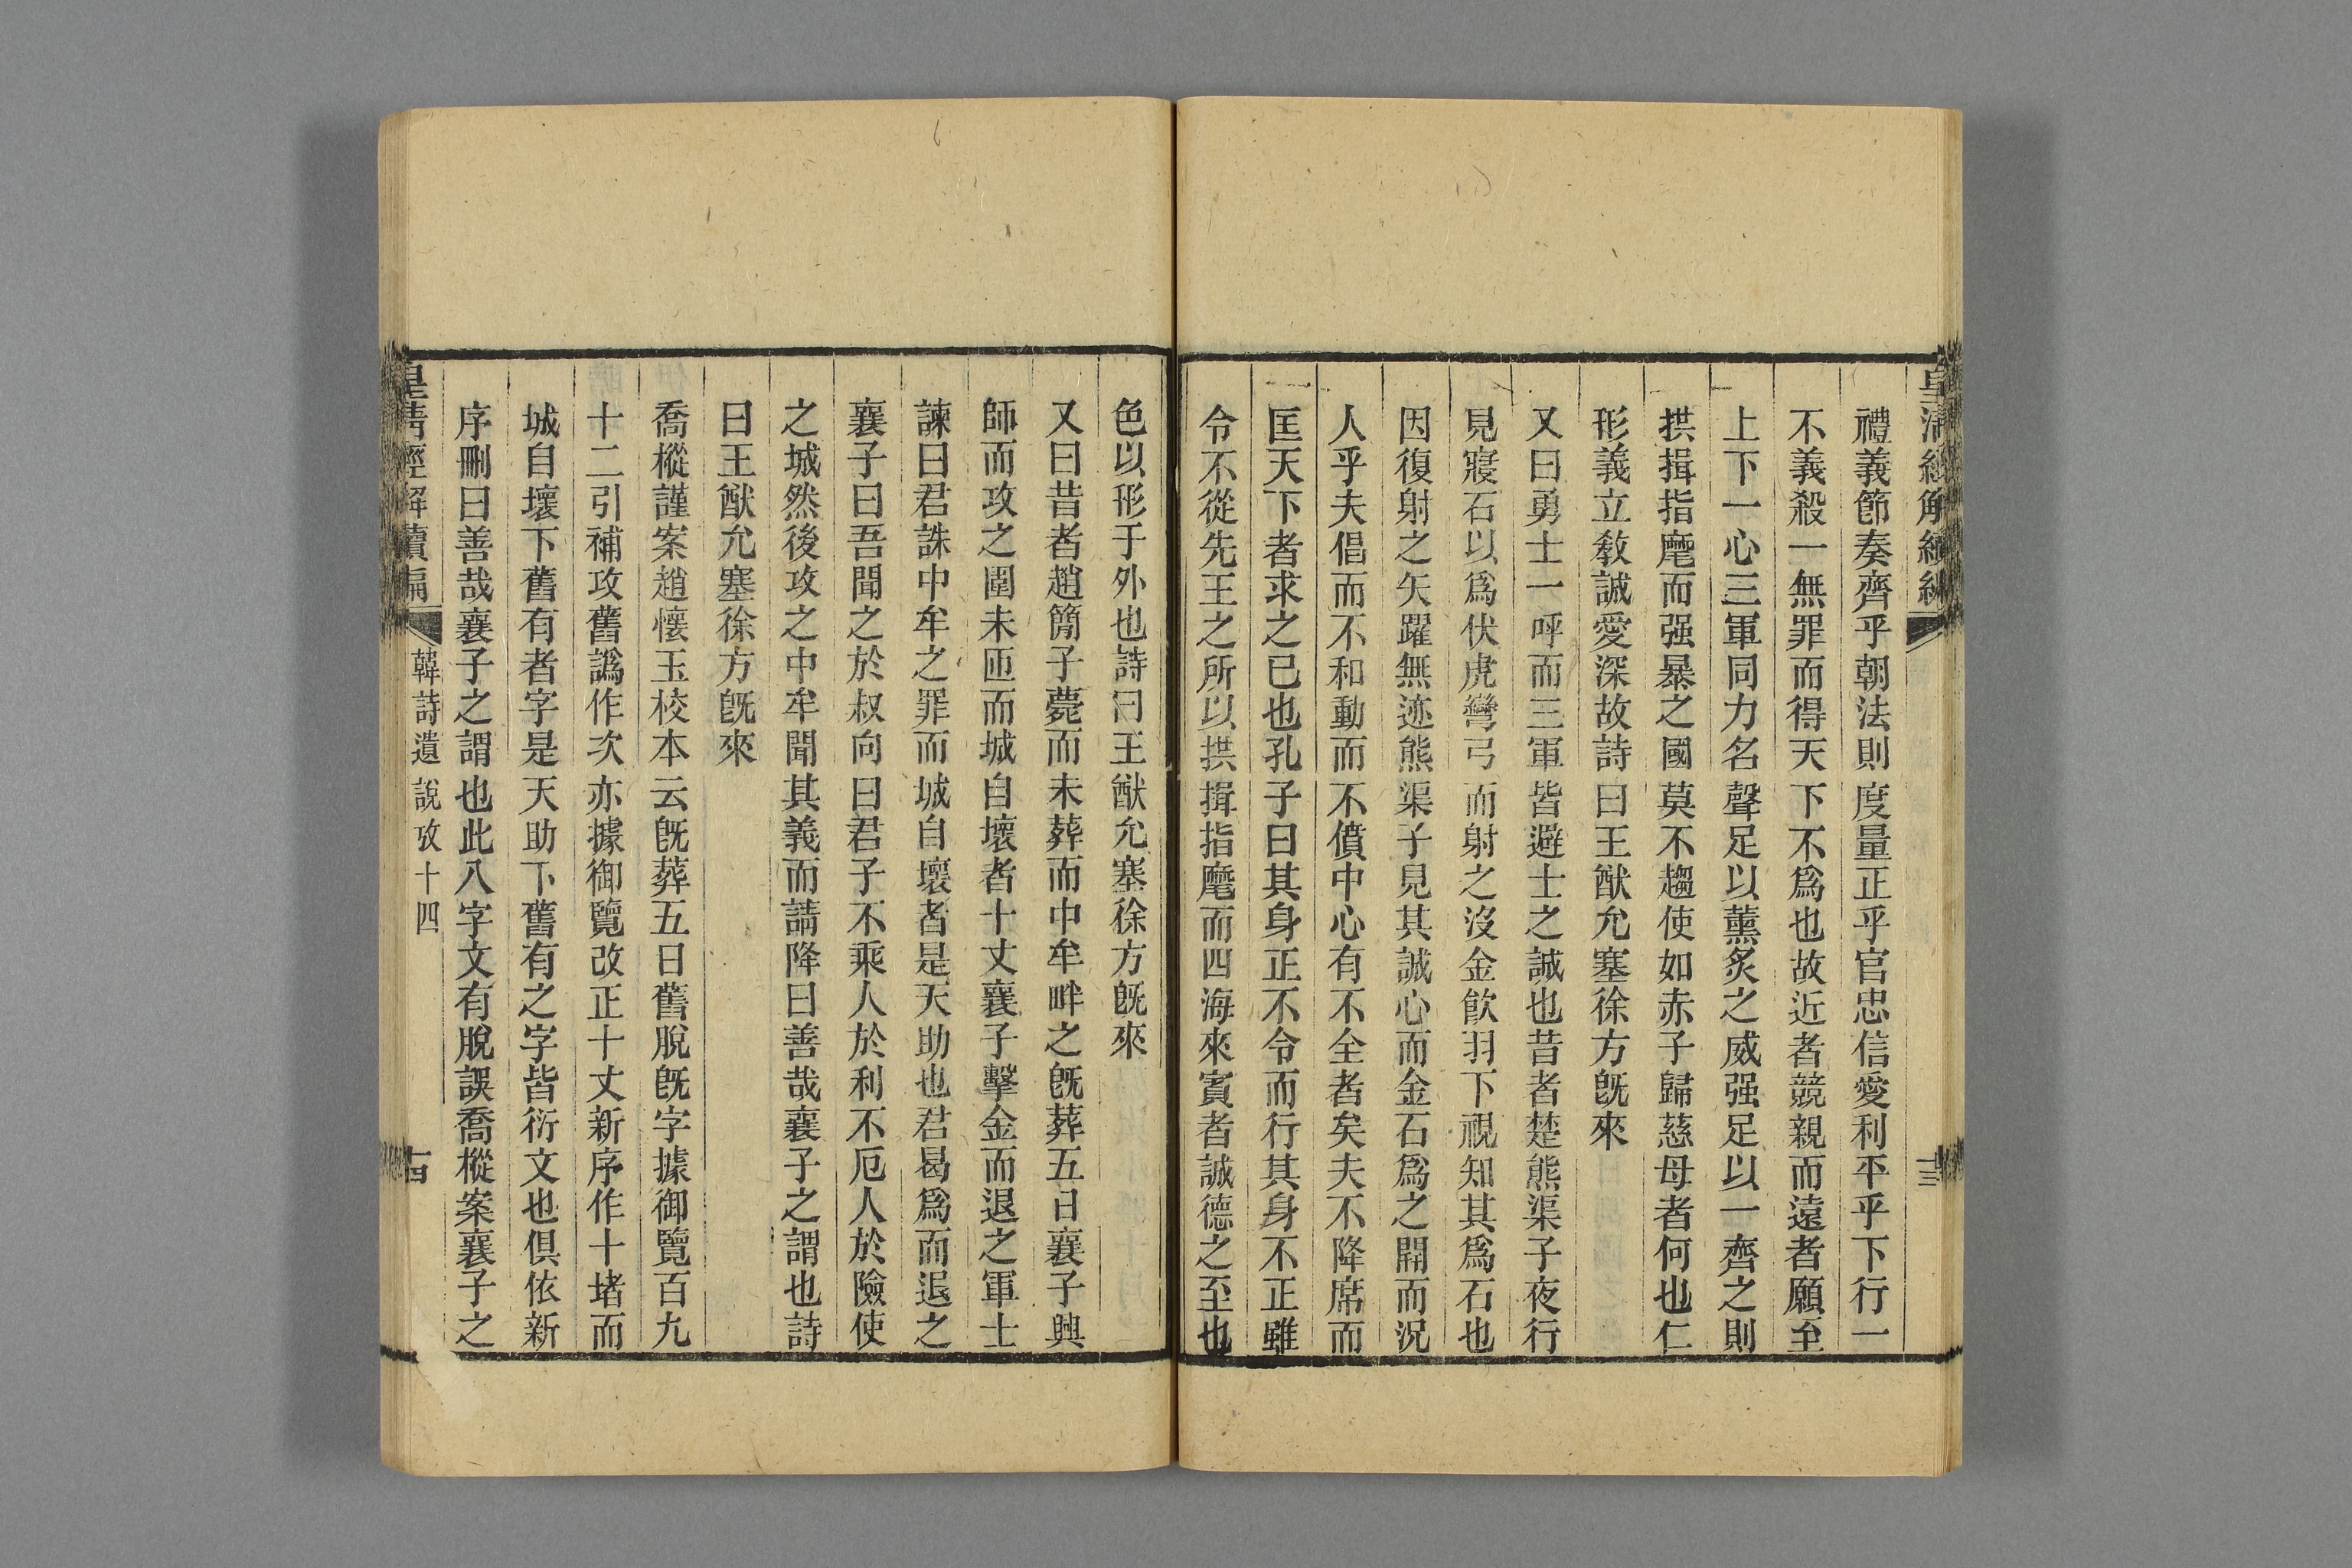 皇清經解續編
十三
禮義節奏齊乎朝法則度量正乎官忠信愛利平乎下行一
不義殺一無罪而得天下不爲也故近者競親而遠者願至
上下一心三軍同力名聲足以薰炙之威强足以一齊之則
拱揖指麾而强暴之國莫不趨使如赤子歸慈母者何也仁
形義立敎誠愛深故詩曰王猷允塞徐方旣來
又曰勇士一呼而三軍皆避士之誠也昔者楚熊渠子夜行
見寢石以爲伏虎彎弓而射之沒金飮羽下視知其爲石也
因復射之矢躍無迹熊渠子見其誠心而金石爲之開而況
人乎夫倡而不和動而不僨中心有不全者矣夫不降席而
匡天下者求之已也孔子曰其身正不令而行其身不正雖
令不從先王之所以拱揖指麾而四海來賓者誠德之至也
色以形于外也詩曰王猷允塞徐方旣來
又曰昔者趙簡子薨而未葬而中牟畔之旣葬五日襄子興
師而攻之圍未匝而城自壞者十丈襄子擊金而退之軍士
諫曰君誅中牟之罪而城自壞者是天助也君曷爲而退之
襄子曰吾聞之於叔向曰君子不乘人於利不厄人於險使
之城然後攻之中牟聞其義而請降曰善哉襄子之謂也詩
曰王猷允塞徐方旣來
喬樅謹案趙懷玉校本云旣葬五日舊脫旣字據御覽百九
十二引補攻舊譌作次亦據御覽改正十丈新序作十堵而
城自壞下舊有者字是天助下舊有之字皆衍文也俱依新
序刪曰善哉襄子之謂也此八字文有脫誤喬樅案襄子之
皇清經解續編
韓詩遺說攷十四
十四